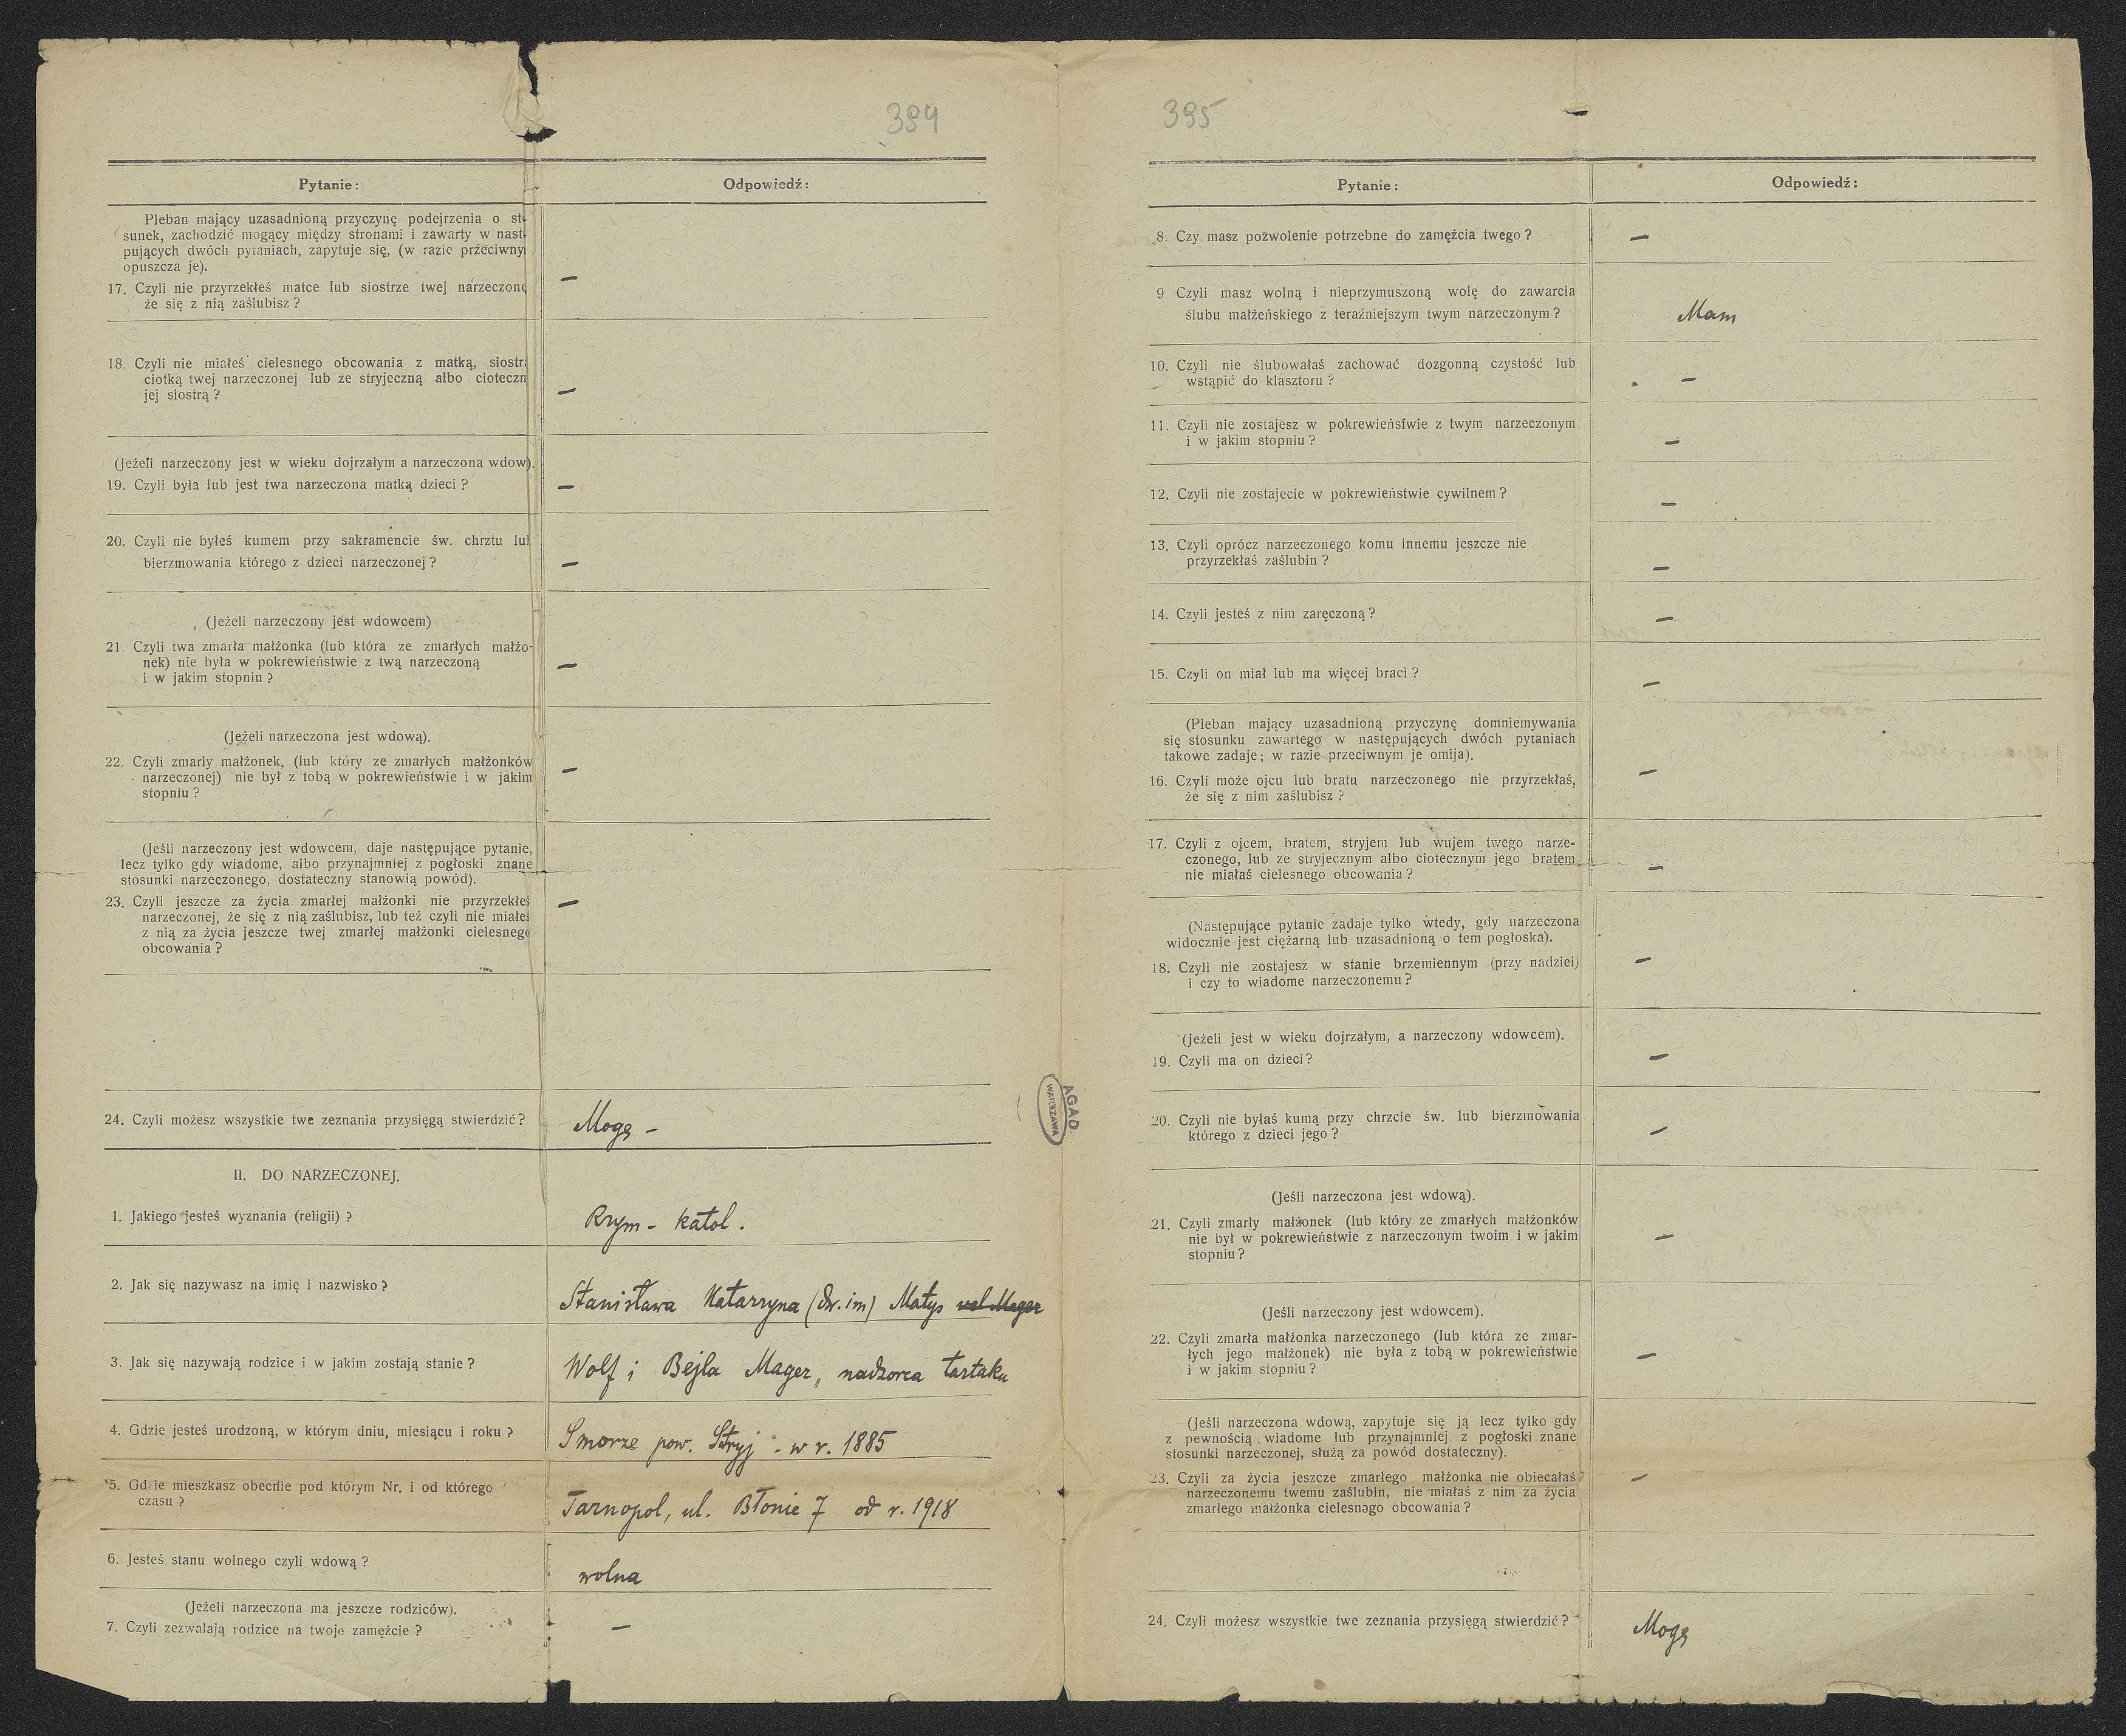 394
Pytanie:
Odpowiedź:
Pleban mający uzasadnioną przyczynę podejrzenia o st
sunek, zachodzić mogący między stronami i zawarty w nast
pujących dwóch pytaniach, zapytuje się, (w razie przeciwny
opuszcza je).
17. Czyli nie przyrzekłeś matce lub siostrze twej narzeczone
że się z nią zaślubisz?
—
18. Czyli nie miałeś cielesnego obcowania z matką, siostrą
ciotką twej narzeczonej lub ze stryjeczną albo cioteczn
jej siostrą?
—
(Jeżeli narzeczony jest w wieku dojrzałym a narzeczona wdow).
19. Czyli była lub jest twa narzeczona matką dzieci?
—
20. Czyli nie byłeś kumem przy sakramencie św. chrztu lub
bierzmowania którego z dzieci narzeczonej?
—
(Jeżeli narzeczony jest wdowcem)
21. Czyli twa zmarła małżonka (lub która ze zmarłych małżo-
nek) nie była w pokrewieństwie z twą narzeczoną
i w jakim stopniu?
—
(Jeżeli narzeczona jest wdową).
22. Czyli zmarły małżonek, (lub który ze zmarłych małżonków
narzeczonej) nie był z tobą w pokrewieństwie i w jakim
stopniu?
—
(Jeśli narzeczony jest wdowcem, daje następujące pytanie,
lecz tylko gdy wiadome, albo przynajmniej z pogłoski znane
stosunki narzeczonego, dostateczny stanowią powód).
23. Czyli jeszcze za życia zmarłej małżonki nie przyrzekłeś
narzeczonej, że się z nią zaślubisz, lub też czyli nie miałeś
z nią za życia jeszcze twej zmarłej małżonki cielesnego
obcowania?
—
24. Czyli możesz wszystkie twe zeznania przysięgą stwierdzić?
Mogę —
II. DO NARZECZONEJ.
1. Jakiego jesteś wyznania (religii)?
Rzym - katol.
2. Jak się nazywasz na imię i nazwisko?
Stanisława Katarzyna (dw. im) Matys vel Mager
3. Jak się nazywają rodzice i w jakim zostają stanie?
Wolf i Bejla Mager, nadzorca tartaku
4. Gdzie jesteś urodzoną, w którym dniu, miesiącu i roku?
Smorze pow. Stryj - w r. 1885
5. Gdzie mieszkasz obecnie pod którym Nr. i od którego
czasu?
Tarnopol, ul. Błonie 7 od r. 1918
6. Jesteś stanu wolnego czyli wdową?
wolna
(Jeżeli narzeczona ma jeszcze rodziców).
7. Czyli zezwalają rodzice na twoje zamężcie?
—
AGAD
WARSZAWA
395
Pytanie:
Odpowiedź:
8. Czy masz pozwolenie potrzebne do zamężcia twego?
—
9 Czyli masz wolną i nieprzymuszoną wolę do zawarcia
ślubu małżeńskiego z teraźniejszym twym narzeczonym?
Mam
10. Czyli nie ślubowałaś zachować dozgonną czystość lub
wstąpić do klasztoru?
—
11. Czyli nie zostajesz w pokrewieństwie z twym narzeczonym
i w jakim stopniu?
—
12. Czyli nie zostajecie w pokrewieństwie cywilnem?
—
13. Czyli oprócz narzeczonego komu innemu jeszcze nie
przyrzekłaś zaślubin?
—
14. Czyli jesteś z nim zaręczoną?
—
15. Czyli on miał lub ma więcej braci?
—
(Pleban mający uzasadnioną przyczynę domniemywania
się stosunku zawartego w następujących dwóch pytaniach
takowe zadaje; w razie przeciwnym je omija).
16. Czyli może ojcu lub bratu narzeczonego nie przyrzekłaś,
że się z nim zaślubisz?
—
17. Czyli z ojcem, bratem, stryjem lub wujem twego narze-
czonego, lub ze stryjecznym albo ciotecznym jego bratem
nie miałaś cielesnego obcowania?
—
(Następujące pytanie zadaje tylko wtedy, gdy narzeczona
widocznie jest ciężarną lub uzasadnioną o tem pogłoska).
18. Czyli nie zostajesz w stanie brzemiennym (przy nadziei)
i czy to wiadome narzeczonemu?
—
(Jeżeli jest w wieku dojrzałym, a narzeczony wdowcem).
19. Czyli ma on dzieci?
—
20. Czyli nie byłaś kumą przy chrzcie św. lub bierzmowania
którego z dzieci jego?
—
(Jeśli narzeczona jest wdową).
21. Czyli zmarły małżonek (lub który ze zmarłych małżonków
nie był w pokrewieństwie z narzeczonym twoim i w jakim
stopniu?
—
(Jeśli narzeczony jest wdowcem).
22. Czyli zmarła małżonka narzeczonego (lub która ze zmar-
łych jego małżonek) nie była z tobą w pokrewieństwie
i w jakim stopniu?
—
(Jeśli narzeczona wdową, zapytuje się ją lecz tylko gdy
z pewnością wiadome lub przynajmniej z pogłoski znane
stosunki narzeczonej, służą za powód dostateczny).
23. Czyli za życia jeszcze zmarłego małżonka nie obiecałaś
narzeczonemu twemu zaślubin, nie miałaś z nim za życia
zmarłego małżonka cielesnego obcowania?
—
24. Czyli możesz wszystkie twe zeznania przysięgą stwierdzić?
Mogę